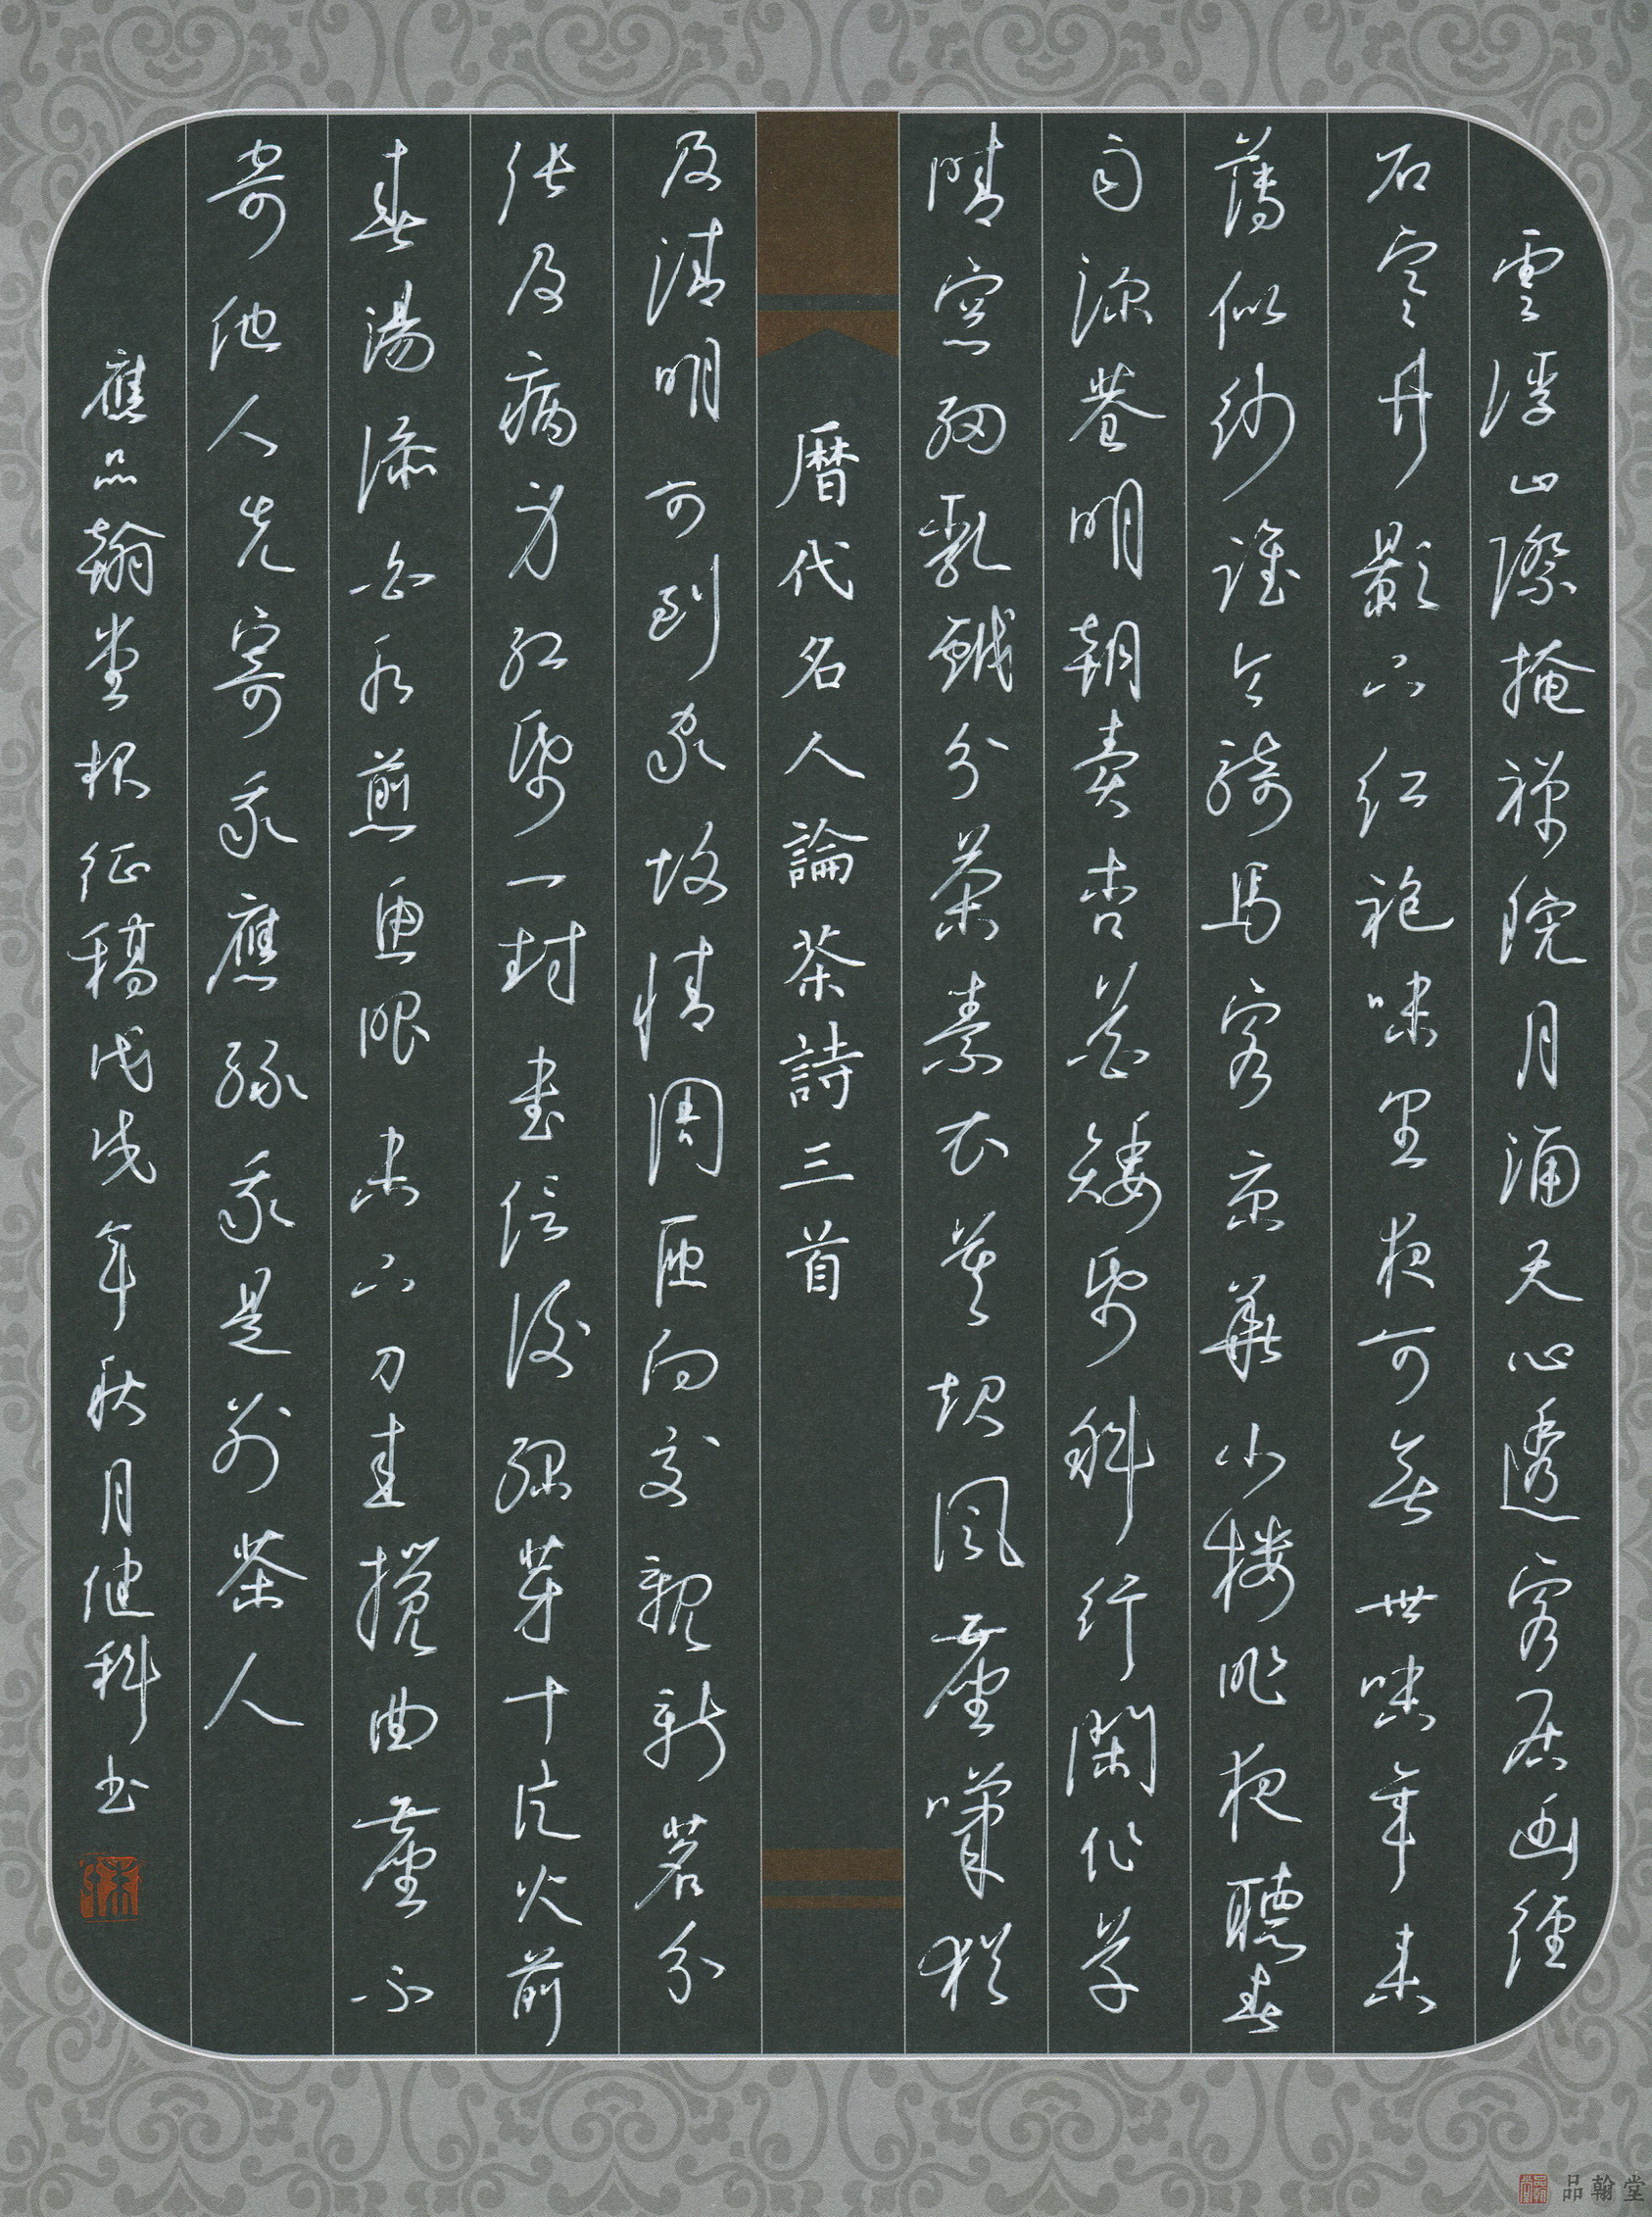 雲浮山際掩禪院月涌天心透客居幽徑
石寒丹影下红袍味里夜可無世味年来
薄似纱誰令骑馬客京華小楼夜聽春
雨深巷明朝賣杏花矮紙斜行閑作草
晴窓細乳戲分茶素衣莫起風塵嘆猶
曆代名人論茶詩三首
及清明可到家故情周匝向交親新茗分
張及病身红紙一封書信後緑芽十片火前
春湯添勺水煎魚眼末下刀圭攪曲塵不
寄他人先寄我應緣我是别茶人
應品翰堂报征稿戊戌年秋月健科书
品翰堂